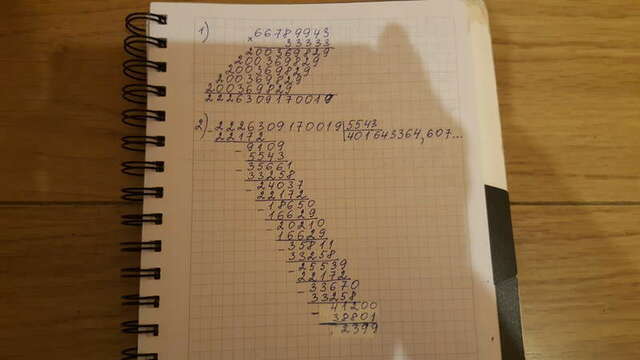 1) 66789943
× 33333
200369829
200369829
200369829
200369829
200369829
2226309170019
2) - 2226309170019 | 5543
22172 401643364,607...
- 9109
5543
- 35661
33258
- 24037
22172
- 18650
16629
- 20210
16629
- 35811
33258
- 25539
22172
- 33670
33258
- 41200
38801
2399